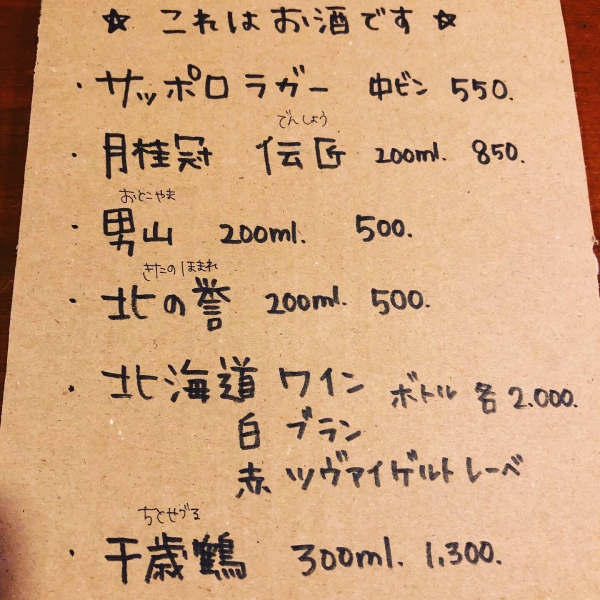 ☆ これはお酒です ☆
・サッポロラガー 中ビン 550.
でんしょう
・月桂冠 伝匠 200ml. 850.
おとこやま
・男山 200ml. 500.
きたのほまれ
・北の誉 200ml. 500.
・北海道 ワイン ボトル 各 2.000.
白 ブラン
赤 ツヴァイゲルトレーベ
ちとせづる
・千歳鶴 300ml. 1,300.